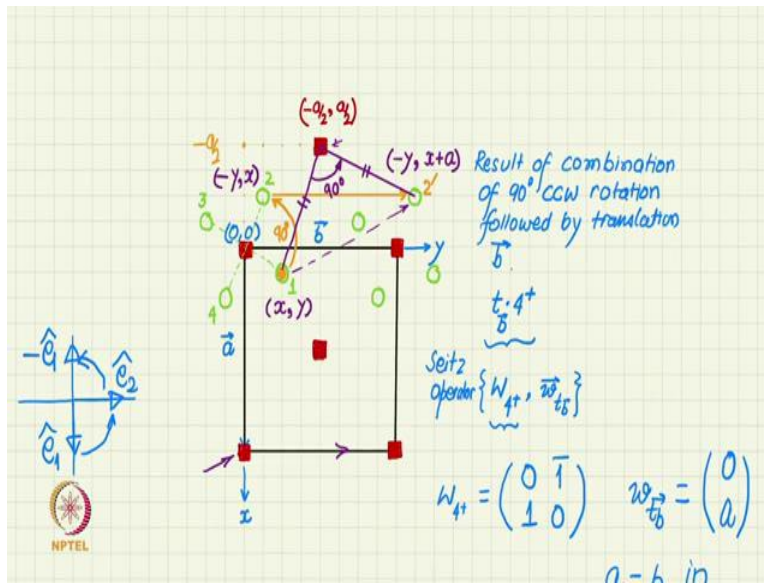 (-a/2, a/2)
-a/2
(-y, x)
2
3
(0,0)
90°
b⃗
90°
(-y, x+a)
2'
y
1
(x, y)
4
a⃗
x
Result of combination
of 90° CCW rotation
followed by translation
b⃗
t_b⃗ · 4⁺
Seitz
Operator {W_4+, w⃗_t_b⃗}
-ê₁
ê₂
ê₁
W_4+ = (0 1̄
1 0)
w_t_b⃗ = (0
a)
a = b in
NPTEL